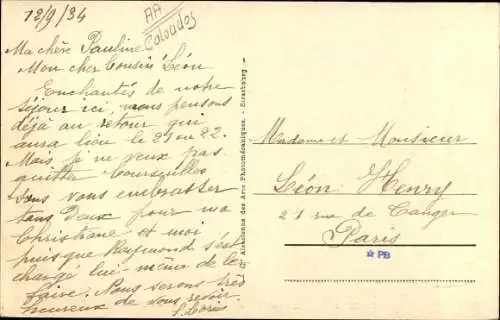 12/9/34
AA
Calvados
Ma chère Pauline
Mon cher Cousin Léon
Enchantés de notre
séjour ici, nous pensons
déjà au retour qui
aura lieu le 21 ou 22.
Mais je ne veux pas
quitter
sans vous embrasser
tous Deux pour ma
Christiane et moi
puisque Raymond s'est
chargé lui-même de le
faire. Nous serons très
heureux de vous revoir.
Cie Alsacienne des Arts Photomécaniques - Strasbourg
Madame et Monsieur
Léon Henry
21 rue de Tanger
Paris
☆ PB